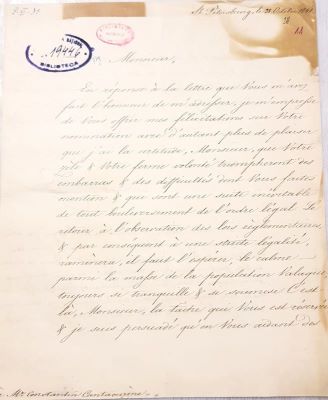 St. Pétersbourg, le 28 Octobre 1848
19446
BIBLIOTECA
Monsieur,
En réponse à la lettre que Vous m'avez
fait l'honneur de m'adresser, je m'empresse
de Vous offrir mes félicitations sur Votre
nomination avec d'autant plus de plaisir
que j'ai la certitude, Monsieur, que Votre
zèle & Votre ferme volonté triompheront des
embarras & des difficultés dont Vous faites
mention & que sont une suite inévitable
de tout bouleversement de l'ordre légal. Le
retour à l'observation des lois réglementaires,
& par conséquent à une stricte légalité,
ramènera, il faut l'espérer, le calme
parmi la masse de la population Valaque,
toujours si tranquille & si soumise. C'est
là, Monsieur, la tâche que Vous est réservée
& je suis persuadé qu'en Vous aidant des
Mr. Constantin Cantacuzène